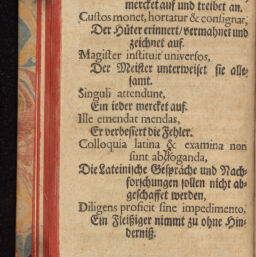 mercket auf und treibet an.
Custos monet, hortatur & consignat,
Der Hüter erinnert/ vermahnet und
zeichnet auf.
Magister instituit universos,
Der Meister unterweiset sie alle-
samt.
Singuli attendunt,
Ein ieder mercket auf.
Ille emendat mendas,
Er verbessert die Fehler.
Colloquia latina & examina non
sunt abroganda,
Die Lateinische Gespräche und Nach-
forschungen sollen nicht ab-
geschaffet werden,
Diligens proficit sine impedimento,
Ein Fleißiger nimmt zu ohne Hin-
derniß.